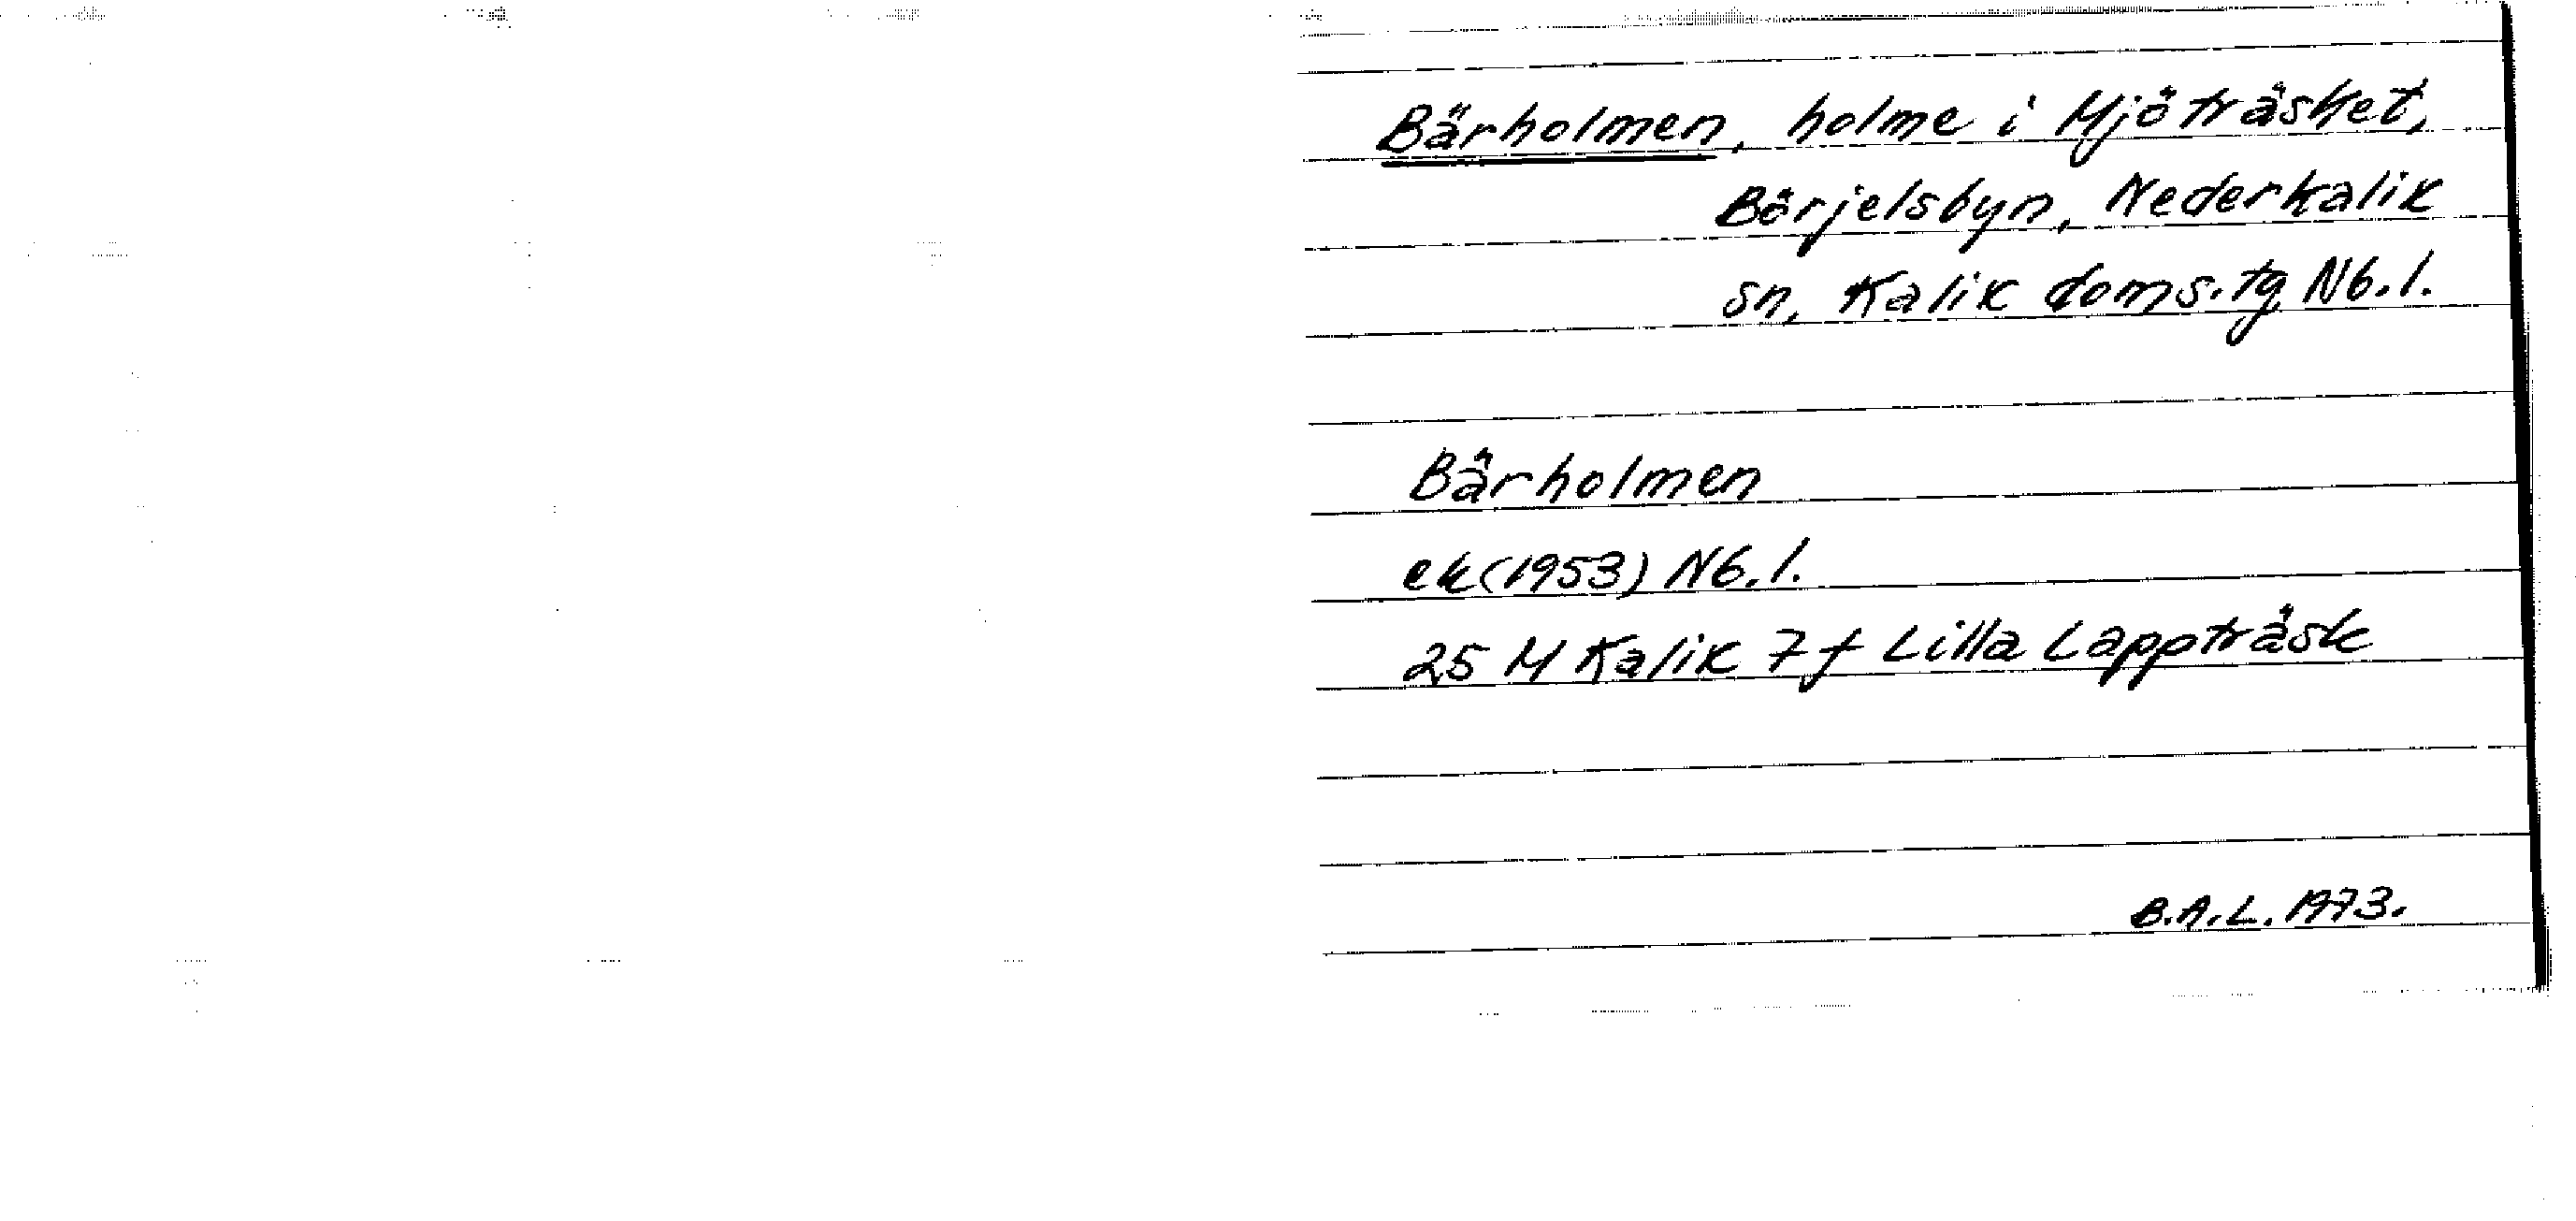 Bärholmen, holme i Mjöträsket,
Börjelsbyn, Nederkalix
sn, Kalix doms.tg Nb.l.
Bärholmen
ek (1953) Nb.l.
25 M Kalix 7 f Lilla Lappträsk
B.A.L. 1973.